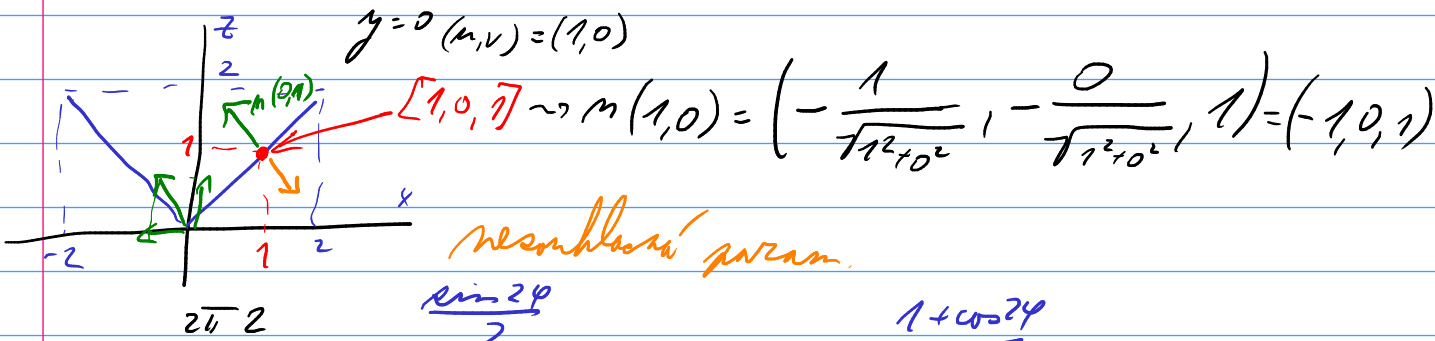 y=0 (u,v) = (1,0)
z
2
n(0,1)
[1,0,1] ~> n(1,0) = (- 1/√(1²+0²), - 0/√(1²+0²), 1) = (-1,0,1)
1
x
-2 1 2
nesouhlasná param.
2π 2 sin2φ/2 1+cos2φ